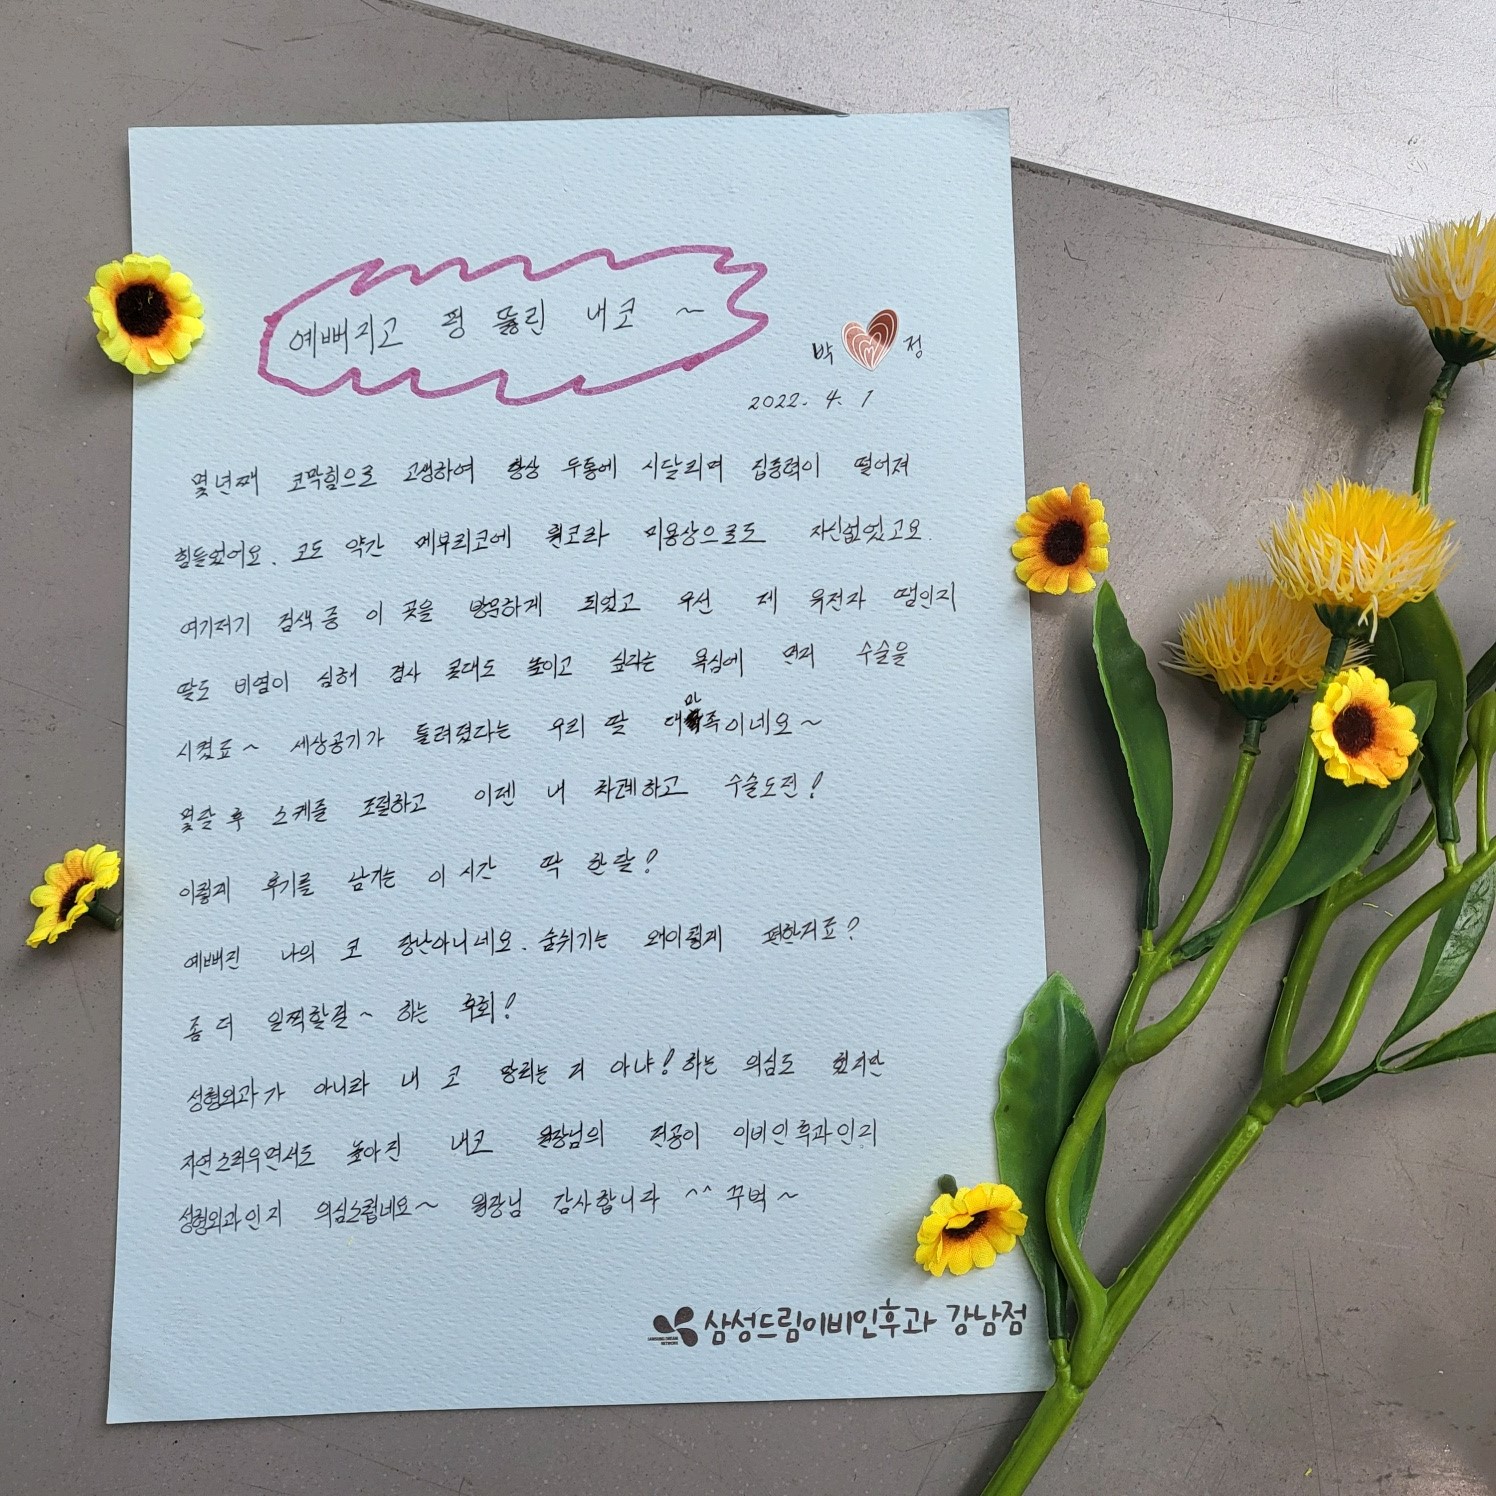 예뻐지고 펑 뚫린 내코 ~
박 정
2022. 4. 1
몇년째 코막힘으로 고생하여 항상 두통에 시달리며 집중력이 떨어져
힘들었어요. 코도 약간 메부리코에 휜코라 미용상으로도 자신없었고요.
여기저기 검색중 이 곳을 방문하게 되었고 우선 제 유전자 땜인지
딸도 비염이 심해 겸사 콧대도 높이고 싶다는 욕심에 먼저 수술을
시켰죠~ 세상공기가 돌려졌다는 우리 딸 대만족이네요~
몇달 후 스케줄 조절하고 이젠 내 차례하고 수술도전!
이렇게 후기를 남기는 이 시간 딱 한달!
예뻐진 나의 코 장난아니네요. 숨쉬기는 왜이렇게 편한거죠?
좀 더 일찍할걸~ 하는 후회!
성형외과가 아니라 내 코 망치는 거 아냐! 하는 의심도 했지만
자연스러우면서도 높아진 내코 원장님의 전공이 이비인후과인지
성형외과인지 의심스럽네요~ 원장님 감사합니다 ^^ 꾸벅~
삼성드림이비인후과 강남점